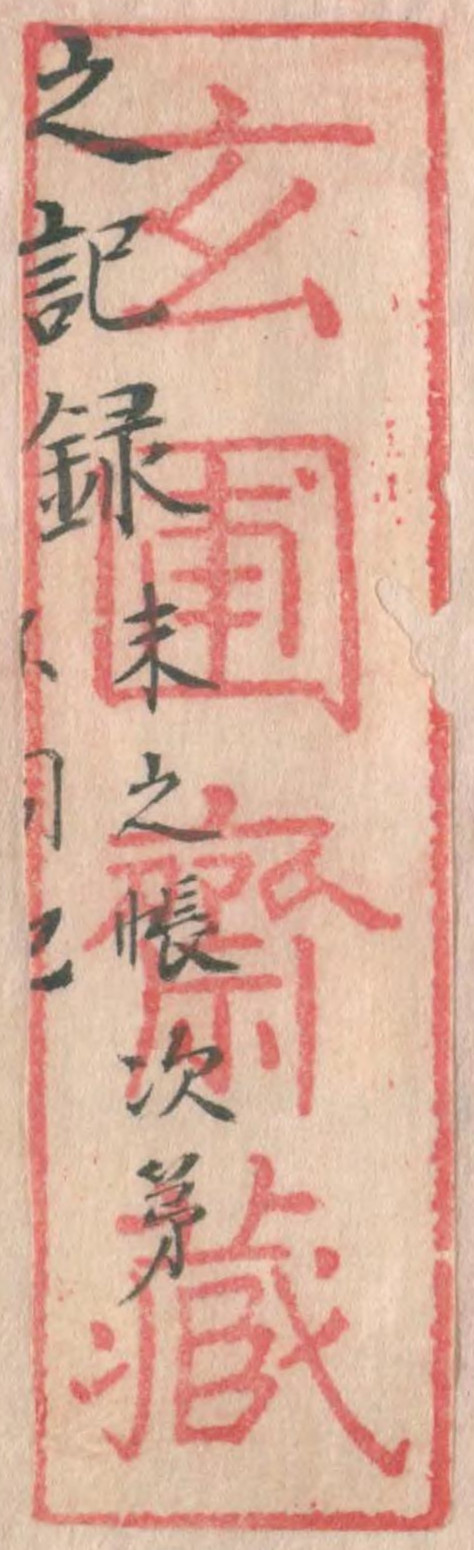 玄圃齋蔵
末之帳次第
之記録